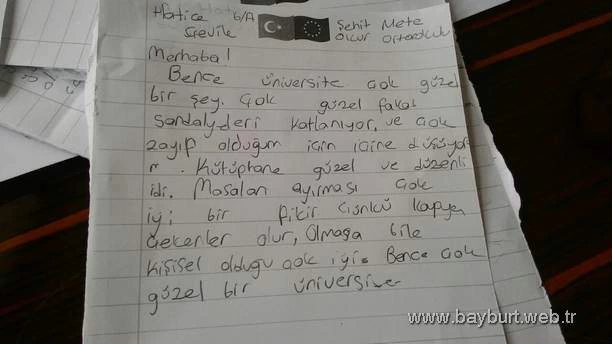 Hatice 6/A Şehit Mete
Sevile olcur ortaokulu
Merhaba!
Bence üniversite çok güzel
bir şey. Çok güzel fakat
sandalyeleri katlanıyor, ve çok
zayıp olduğum için içine düşüyor-
m. Kütüphane güzel ve düzenli
idi. Masaları ayırması çok
iyi bir fikir Çünkü kopya
çekenler olur, Olmasa bile
kişisel olduğu çok iyi. Bence çok
güzel bir üniversite
www.bayburt.web.tr